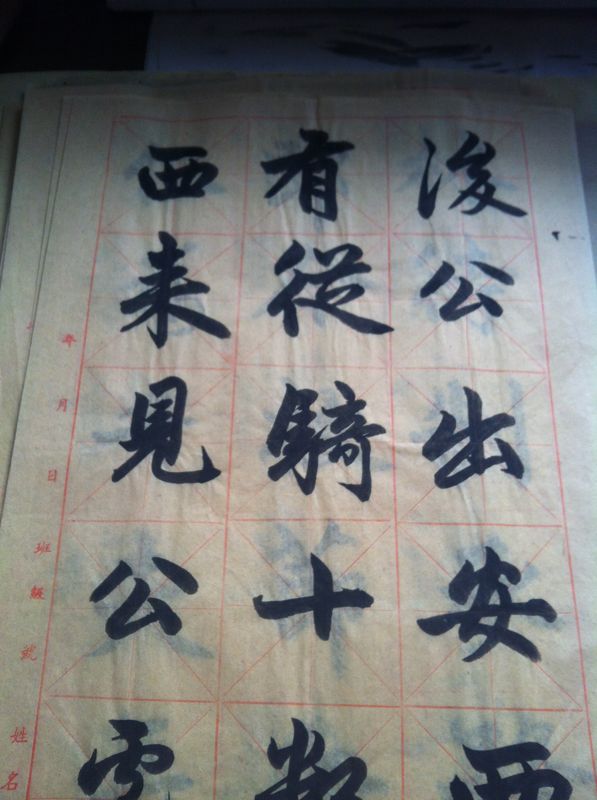 浚公出安西
有從騎十
西来見公
年 月 日 班級 號 姓名